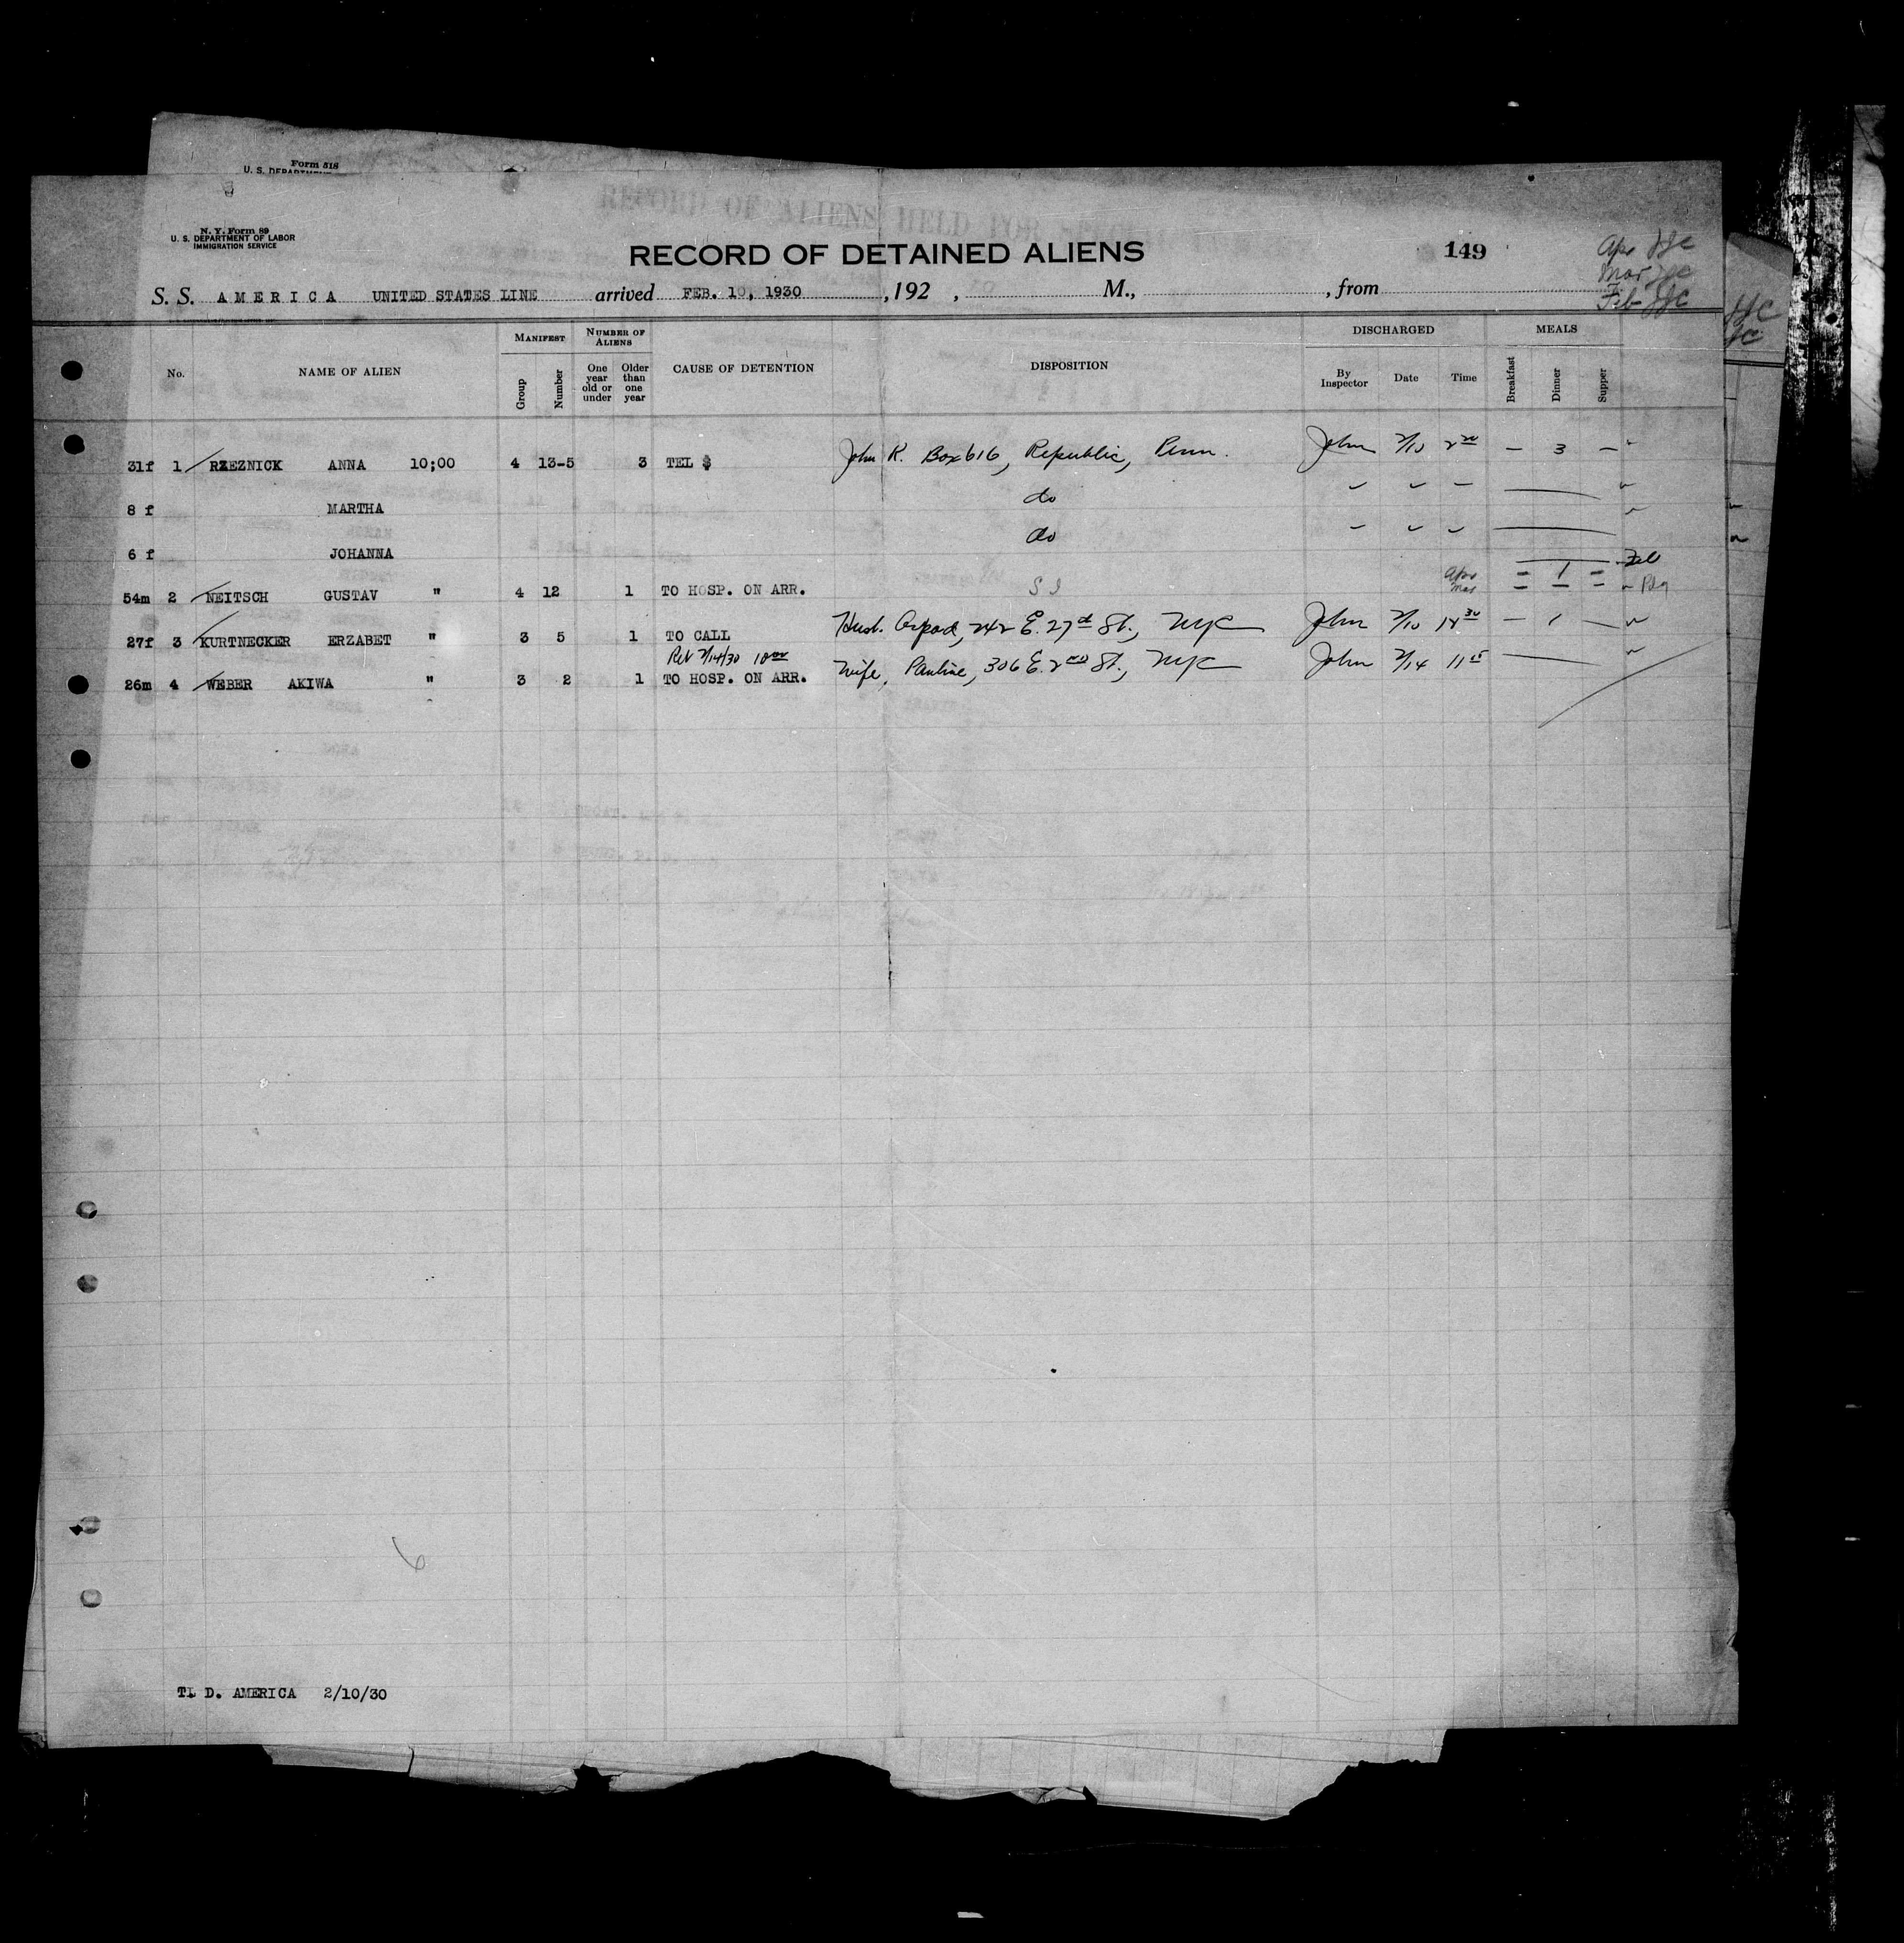 Form 518
U. S. DEPARTMENT
RECORD OF ALIENS HELD FOR SPECIAL INQUIRY
N. Y. Form 89
U. S. DEPARTMENT OF LABOR
IMMIGRATION SERVICE
RECORD OF DETAINED ALIENS
149
Apr JJC
Mar JJC
Feb JJC
S. S. AMERICA UNITED STATES LINE arrived FEB. 10, 1930 , 192 , M., , from
No. NAME OF ALIEN MANIFEST Group Number NUMBER OF ALIENS One year old or under Older than one year CAUSE OF DETENTION DISPOSITION DISCHARGED By Inspector Date Time MEALS Breakfast Dinner Supper
31f 1 RZEZNICK ANNA 10;00 4 13-5 3 TEL $ John R. Box 616, Republic, Penn. John 2/10 2 20 – 3 –
8 f MARTHA do
6 f JOHANNA do
Feb
54m 2 NEITSCH GUSTAV " 4 12 1 TO HOSP. ON ARR. S I Apr Mar – 1 –
27f 3 KURTNECKER ERZABET " 3 5 1 TO CALL Husb. Arpad, 242 E. 27th St., NYC John 2/10 12 30 – 1 –
Rel 2/14/30 10 00
26m 4 WEBER AKIWA " 3 2 1 TO HOSP. ON ARR. Wife, Pauline, 306 E. 2nd St., NYC John 2/14 11 15
6
TL D. AMERICA 2/10/30